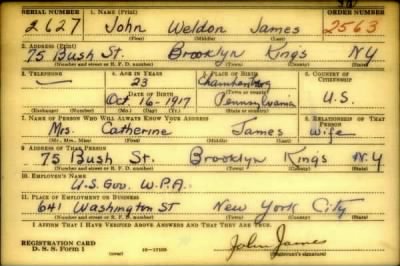 SERIAL NUMBER 1. NAME (Print) ORDER NUMBER
2627 John Weldon James 2563
(First) (Middle) (Last)
2. ADDRESS (Print)
75 Bush St. Brooklyn King's N.Y
(Number and street or R. F. D. number) (Town) (County) (State)
3. TELEPHONE 4. AGE IN YEARS 5. PLACE OF BIRTH 6. COUNTRY OF CITIZENSHIP
— 23 Chambersburg
DATE OF BIRTH (Town or county)
Oct. 16-1917 Pennsylvania U.S.
(Exchange) (Number) (Mo.) (Day) (Yr.) (State or country)
7. NAME OF PERSON WHO WILL ALWAYS KNOW YOUR ADDRESS 8. RELATIONSHIP OF THAT PERSON
Mrs. Catherine James Wife
(Mr., Mrs., Miss) (First) (Middle) (Last)
9. ADDRESS OF THAT PERSON
75 Bush St. Brooklyn King's N.Y
(Number and street or R. F. D. number) (Town) (County) (State)
10. EMPLOYER'S NAME
U.S. Gov. W.P.A.
11. PLACE OF EMPLOYMENT OR BUSINESS
641 Washington St New York City
(Number and street or R. F. D. number) (Town) (County) (State)
I AFFIRM THAT I HAVE VERIFIED ABOVE ANSWERS AND THAT THEY ARE TRUE.
REGISTRATION CARD
D. S. S. Form 1 John James
(Registrant's signature)